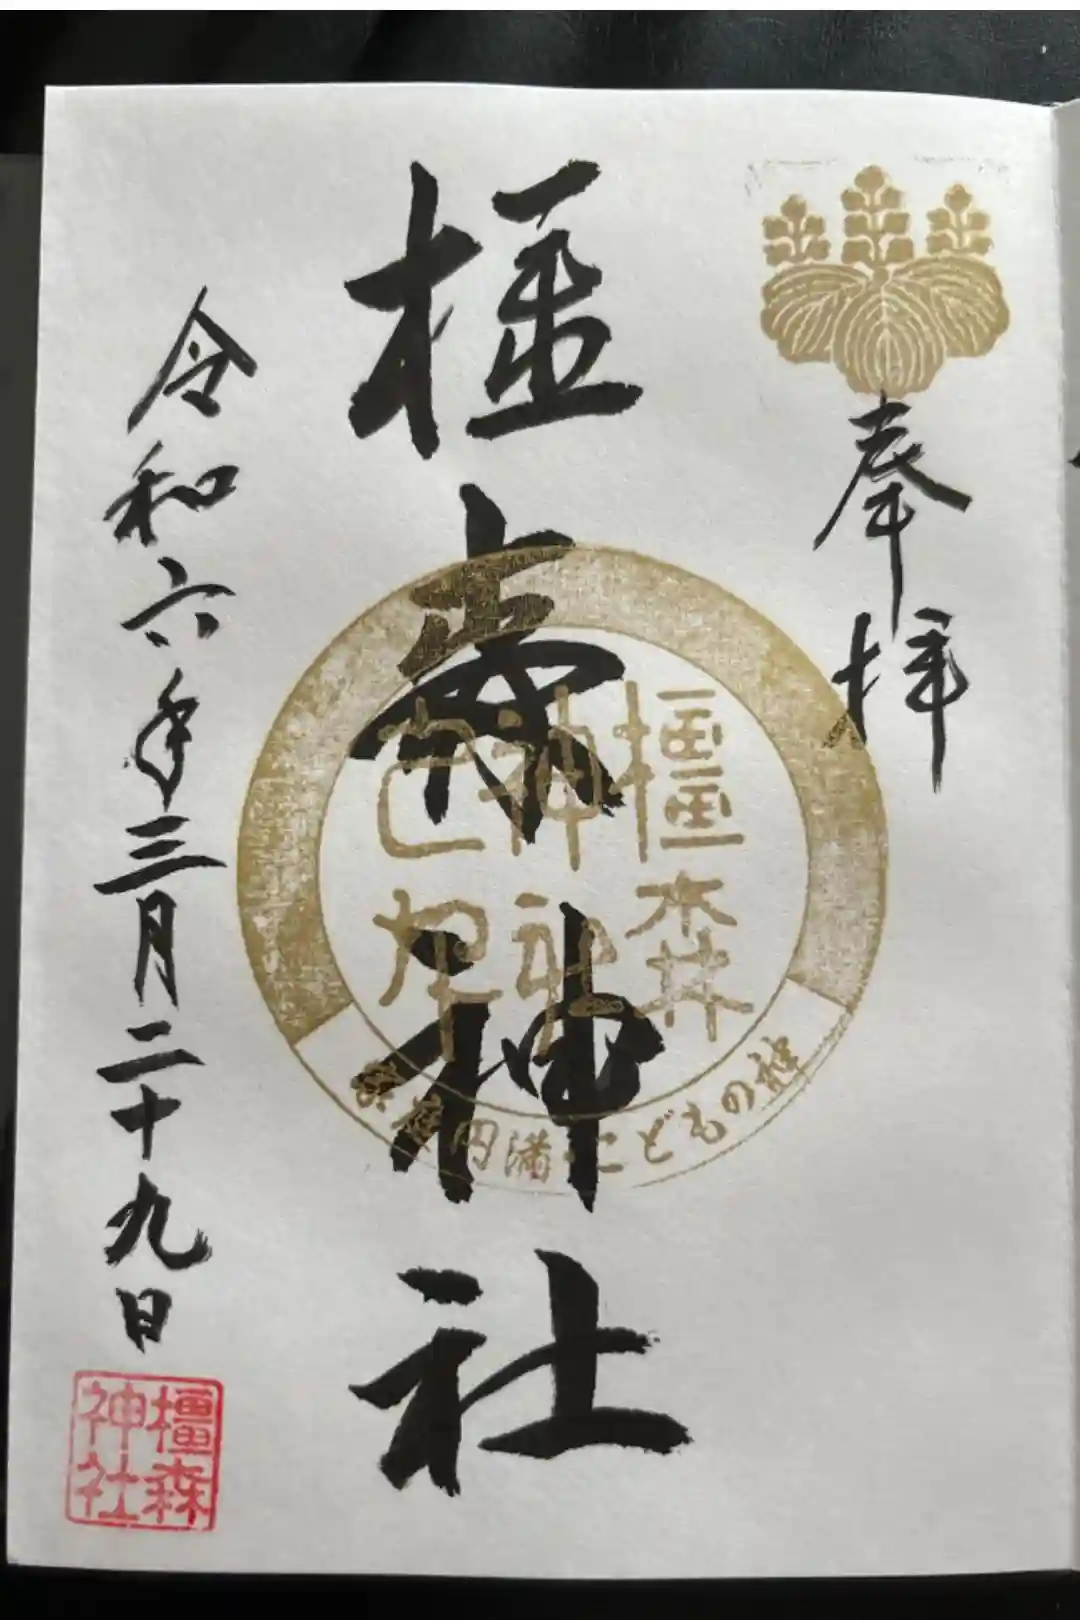 奉拝
橿森神社
令和六年三月二十九日
橿森
神社
参拝
家庭円満・こどもの神
橿森
神社